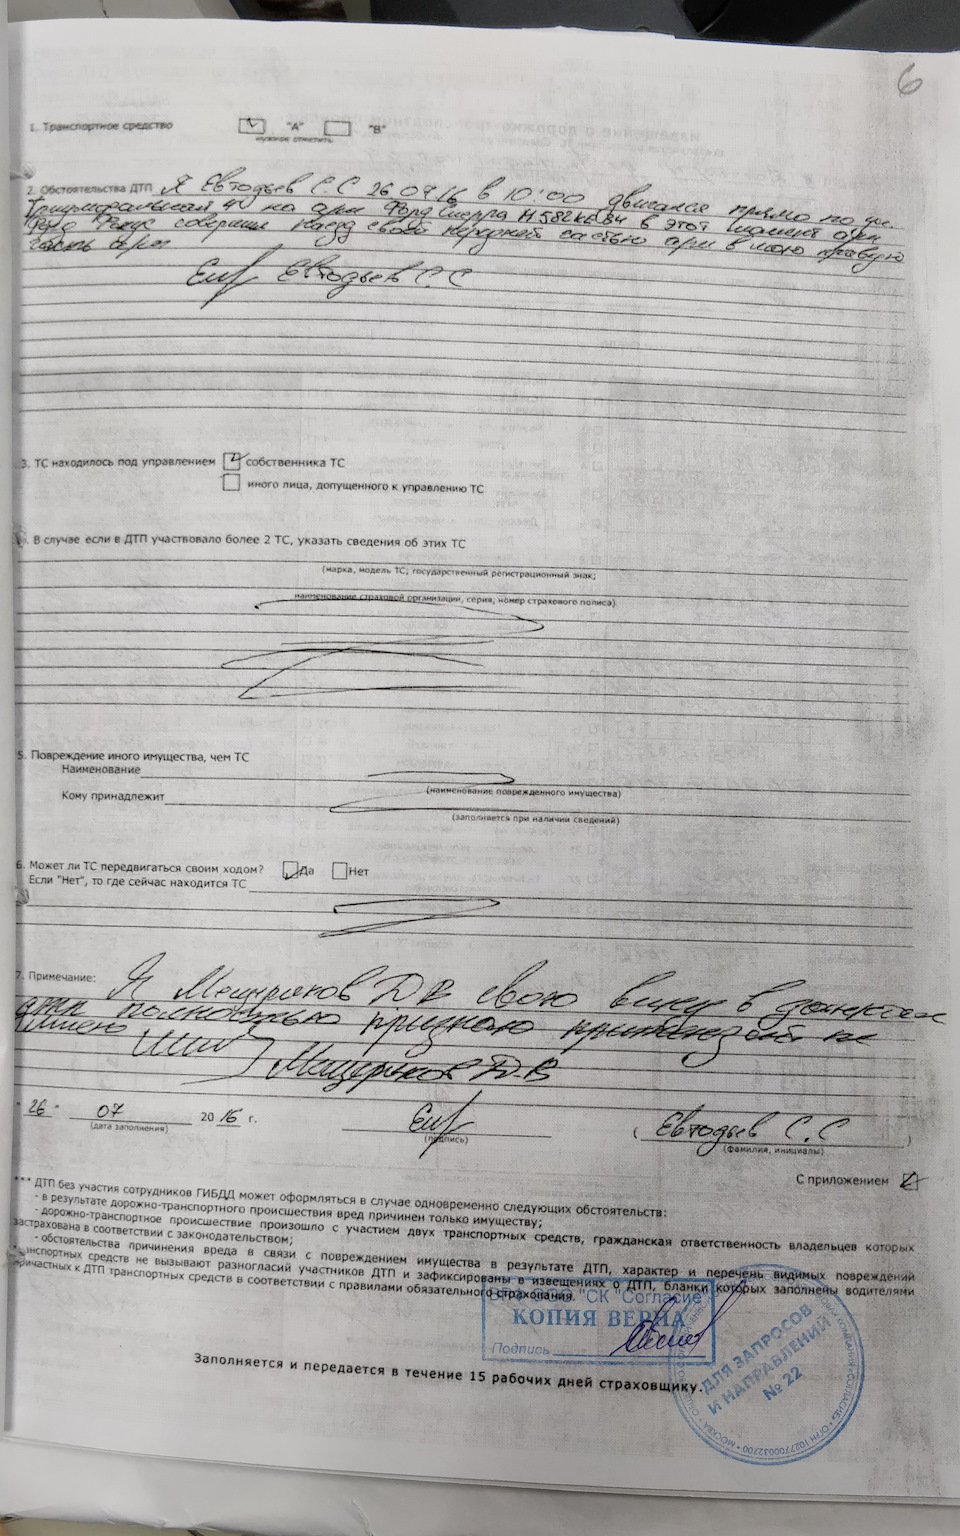 6
1. Транспортное средство "А" "В"
нужное отметить
2. Обстоятельства ДТП Я Евтодьев С.С 26 07.16 в 10:00 двигался прямо по ул.
Триумфальная 40 на а/м Форд Сиерра в этот момент а/м
Форд Фокус совершил наезд своей передней частью а/м в мою правую
часть а/м
Евтодьев С.С
3. ТС находилось под управлением собственника ТС
иного лица, допущенного к управлению ТС
. В случае если в ДТП участвовало более 2 ТС, указать сведения об этих ТС
(марка, модель ТС, государственный регистрационный знак;
наименование страховой организации, серия, номер страхового полиса)
5. Повреждение иного имущества, чем ТС
Наименование
(наименование поврежденного имущества)
Кому принадлежит
(заполняется при наличии сведений)
6. Может ли ТС передвигаться своим ходом? Да Нет
Если "Нет", то где сейчас находится ТС
7. Примечание: Я Мещеряков Д В свою вину в данном
ДТП полностью признаю притензий не
имею
Мещеряков Д.В
" 26 " 07 20 16 г.
(дата заполнения) (подпись) ( Евтодьев С.С )
(фамилия, инициалы)
С приложением
*** ДТП без участия сотрудников ГИБДД может оформляться в случае одновременно следующих обстоятельств:
- в результате дорожно-транспортного происшествия вред причинен только имуществу;
- дорожно-транспортное происшествие произошло с участием двух транспортных средств, гражданская ответственность владельцев которых
застрахована в соответствии с законодательством;
- обстоятельства причинения вреда в связи с повреждением имущества в результате ДТП, характер и перечень видимых повреждений
транспортных средств не вызывают разногласий участников ДТП и зафиксированы в извещениях о ДТП, бланки которых заполнены водителями
причастных к ДТП транспортных средств в соответствии с правилами обязательного страхования.
"СК "Согласие"
КОПИЯ ВЕРНА
Подпись
ДЛЯ ЗАПРОСОВ
И НАПРАВЛЕНИЙ
№ 22
МОСКВА • ОГРН 1027700032700
Заполняется и передается в течение 15 рабочих дней страховщику.